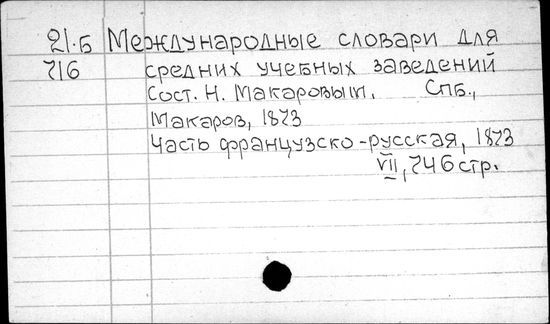 21.Б Международные словари для
716 средних учебных заведений
Сост. Н. Макаровым. Спб.,
Макаров, 1873
Часть французско-русская, 1873
VII, 746 стр.